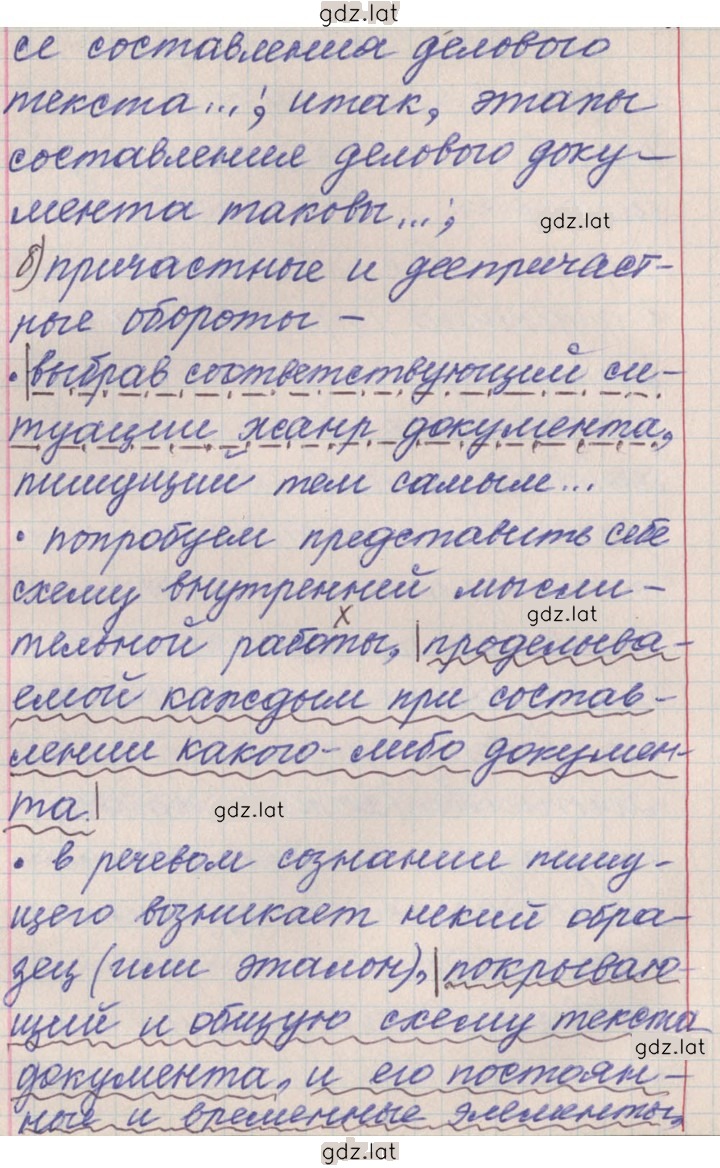 gdz.lat
се составления делового
текста...; итак, этапы
составления делового доку-
мента таковы...;
gdz.lat
б) причастные и деепричаст-
ные обороты -
• |выбрав соответствующий си-
туации жанр документа,
пишущий тем самым...
• попробуем представить себе
схему внутренней мысли-
gdz.lat
х
тельной работы, |проделыва-
емой каждым при состав-
лении какого-либо докумен-
та.|
gdz.lat
• в речевом сознании пишу-
щего возникает некий обра-
зец (или эталон), |покрываю-
щий и общую схему текста
gdz.lat
документа, и его постоян-
ные и временные элементы,
gdz.lat